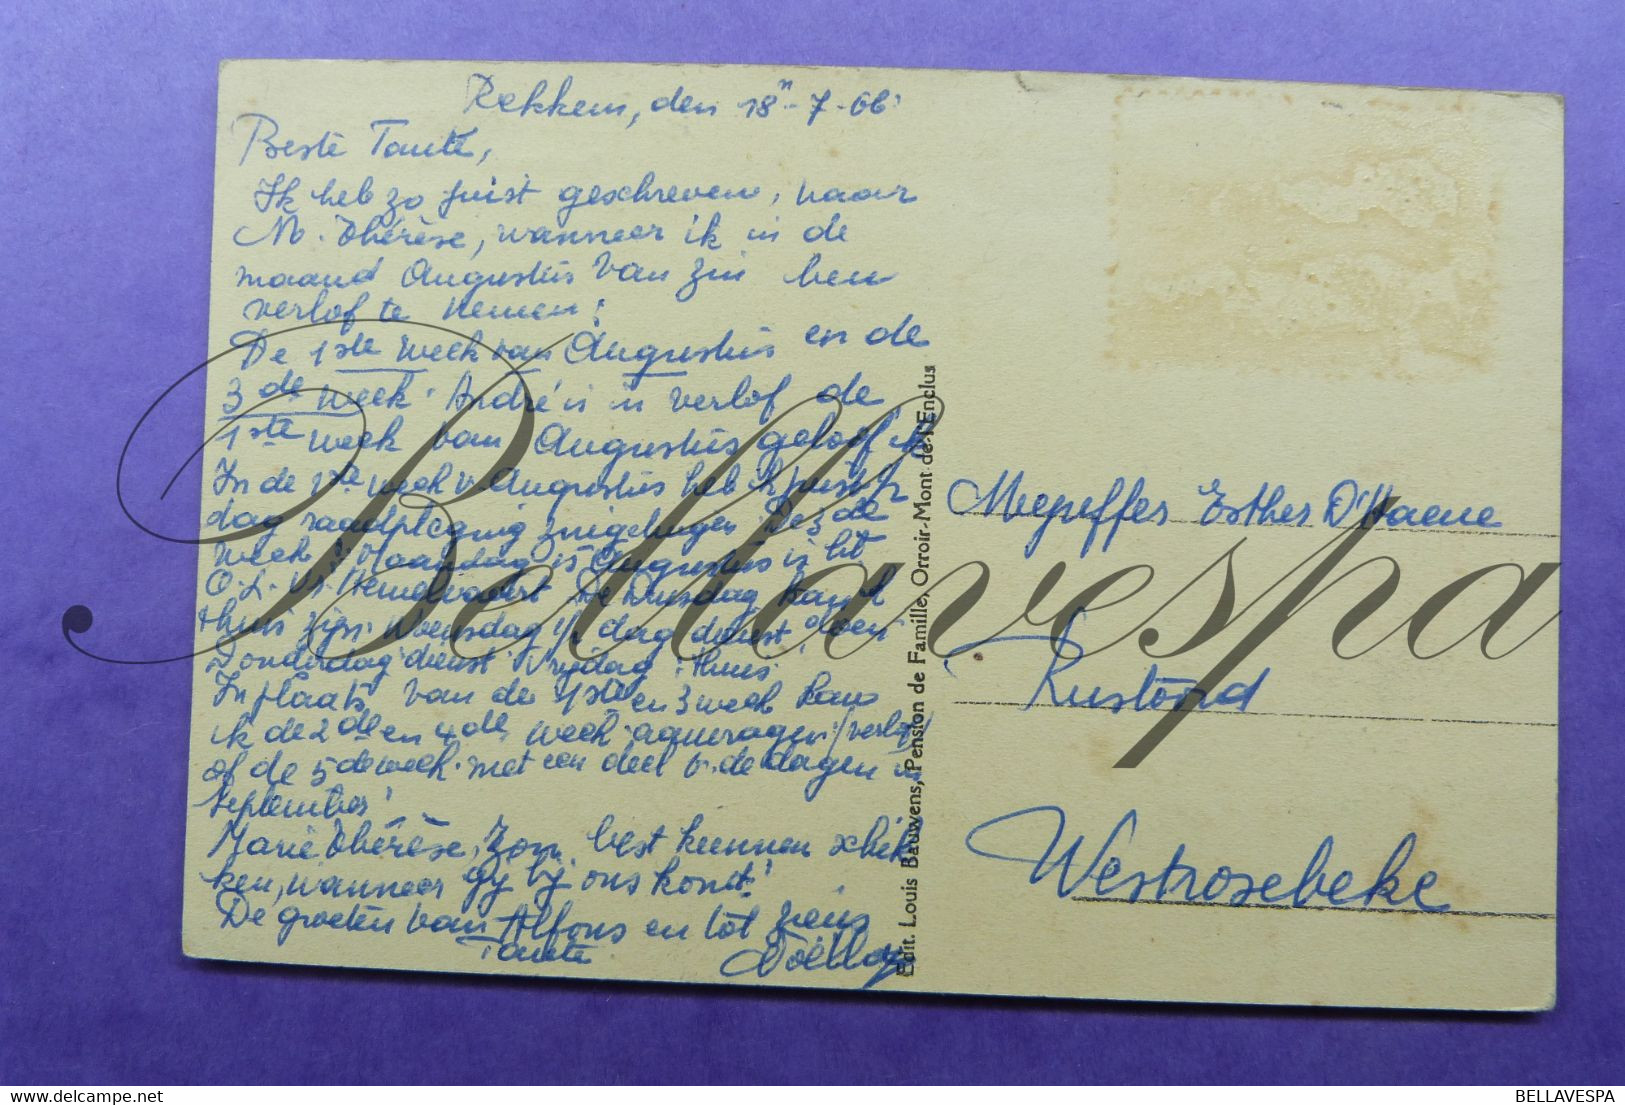 Rekkem, den 18n-7-66.
Beste Tante,
Ik heb zo juist geschreven, naar
M. Thérèse, wanneer ik in de
maand Augustus van zin ben
verlof te nemen:
De 1ste week van Augustus en de
3de week. André is in verlof de
1ste week van Augustus geloof ik
In de 1ste week v. Augustus heb ik juist 1/2
dag raadpleging zuigelingen. De 3de
week: Maandag 15 Augustus is het
O.L.Vr. Hemelvaart. De Dinsdag kan ik
thuis zijn. Woensdag 1/2 dag dienst doen
Donderdag dienst. Vrijdag: thuis.
In plaats van de 1ste en 3 week kan
ik de 2de en 4de week aanvragen (verlof)
of de 5de week. met een deel v. de dagen in
September!
Marie Thérèse, zou best kunnen schik-
ken, wanneer gy by ons komt!
De groeten van Alfons en tot ziens
Tante
Edit. Louis Bauwens, Pension de Famille, Orroir-Mont de l'Enclus
Mejuffer Esther D'Haene
Rustoord
Westrozebeke
Bellavespa
BELLAVESPA
delcampe.net